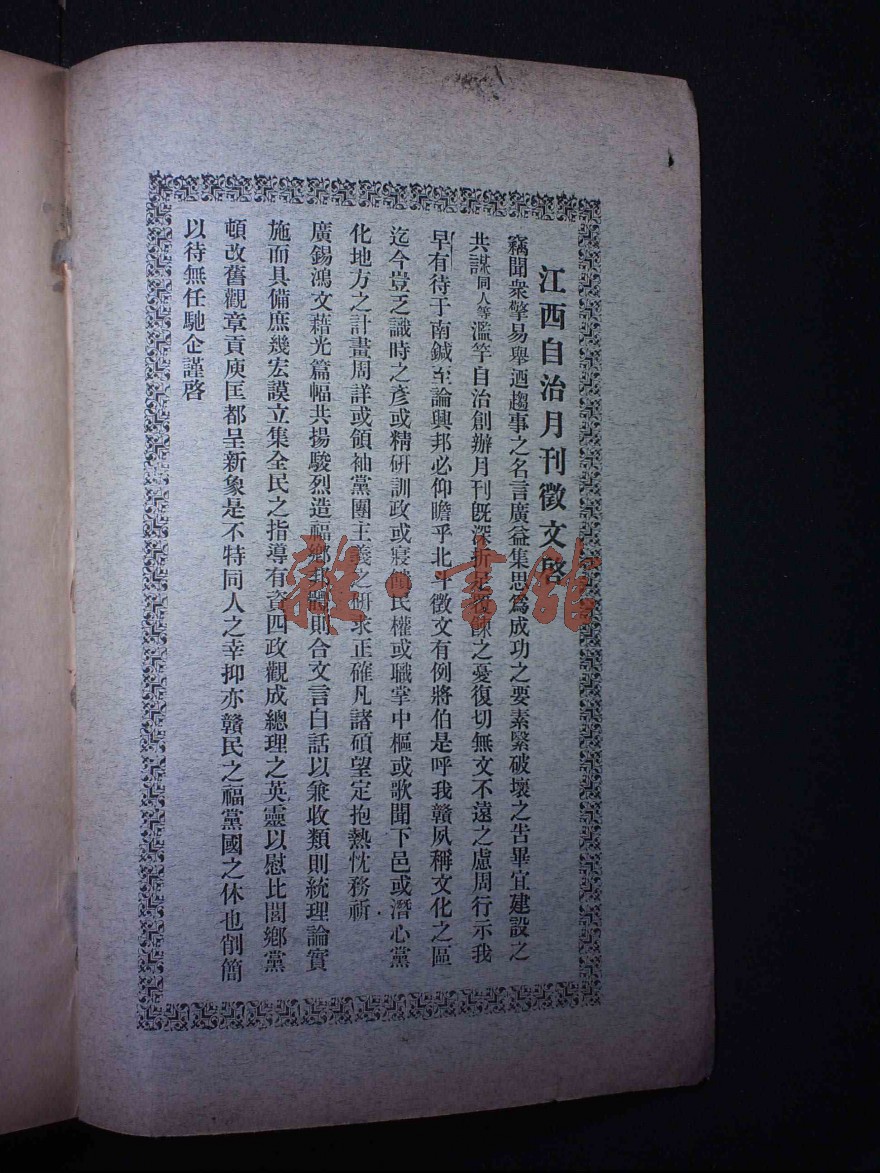 江西自治月刊徵文啓
竊聞衆擎易舉迺趨事之名言廣益集思為成功之要素緊破壞之告畢宜建設之
共謀同人等濫竽自治創辦月刊旣深折足覆餗之憂復切無文不遠之慮周行示我
早有待于南鍼至論興邦必仰瞻乎北斗徵文有例將伯是呼我贛夙稱文化之區
迄今豈乏識時之彥或精研訓政或寢饋民權或職掌中樞或歌聞下邑或潛心黨
化地方之計畫周詳或領袖黨團主義之研求正確凡諸碩望定抱熱忱務祈
廣錫鴻文藉光篇幅共揚駿烈造福鄉邦體則合文言白話以兼收類則統理論實
施而具備庶幾宏謨立集全民之指導有資四政觀成總理之英靈以慰比閭鄉黨
頓改舊觀章貢庾匡都呈新象是不特同人之幸抑亦贛民之福黨國之休也削簡
以待無任馳企謹啓
雜·書館